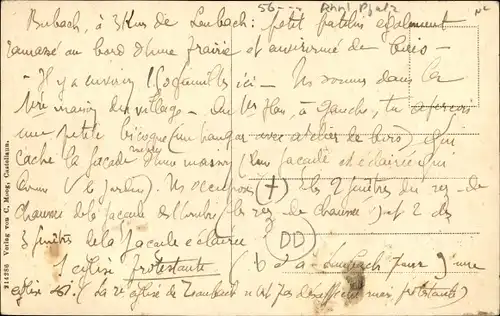 56---- Rhld Pfalz
Bubach, à 3 Kms de Laubach: petit patelin également
ramassé au bord d'une prairie et environné de bois -
- Il y a environ 150 familles ici - Ns sommes dans la
1ère maison du village - Au 1er plan, à gauche, tu aperçois
une petite bicoque (un hangar avec atelier de bois) qui
cache la façade d'une maison (l'une façade et éclairée qui
donne / le jardin). Ns occupons (+) les 2 fenêtres du rez-de
chaussée de la façade de l'ombre (le rez-de-chaussée) et 2 des
3 fenêtres de la façade éclairée (DD)
1 église protestante (
à Laubach pour 1 une
église (La 2e église de Laubach n'est pas mais protestante)
214386 Verlag von C. Moog, Castellaun.